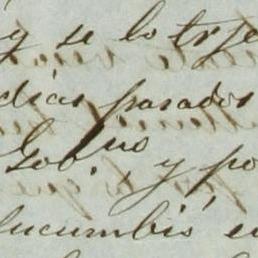 y se lo traje
dias pasados
Gob.no, y po
sucumbió en